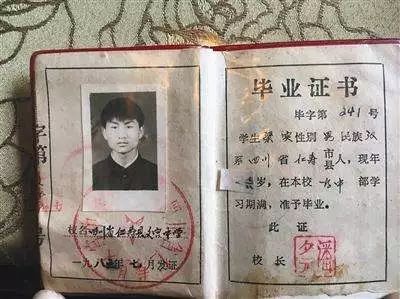 字第
号
校名四川省仁寿县文宫中学
一九八 年七月发证
毕业证书
毕字第 241 号
学生 实性别 男 民族 汉
系 四川 省 仁寿 市县人，现年
岁，在本校 部学
习期满，准予毕业。
此证
校长